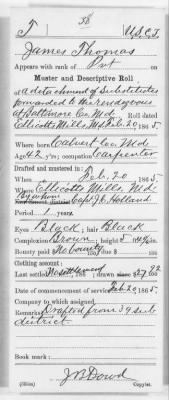 T | 38 | U.S.C.T.
James Thomas
Appears with rank of Pvt on
Muster and Descriptive Roll
of a detachment of Substitutes
forwarded to the rendezvous
at Baltimore Co. Md Roll dated
Ellicotts Mills, Md. Feb. 20, 1865.
Where born Calvert Co. Md
Age 42 y'rs; occupation Carpenter
Drafted and mustered in:
When Feb. 20, 1865.
Where Ellicotts Mills, Md.
By whom Capt. J.C. Holland
Period 1 years.
Eyes Black; hair Black
Complexion Brown; height 5 ft. in.
Bounty paid $ No bounty 100; due $ 100
Clothing account:
Last settled No settlement, 186 ; drawn since $ 27 62/100
Date of commencement of service Feb. 20, 1865.
Company to which assigned,
Remarks: Drafted from 39 sub
district.
Book mark:
J B Dowd
Copyist.